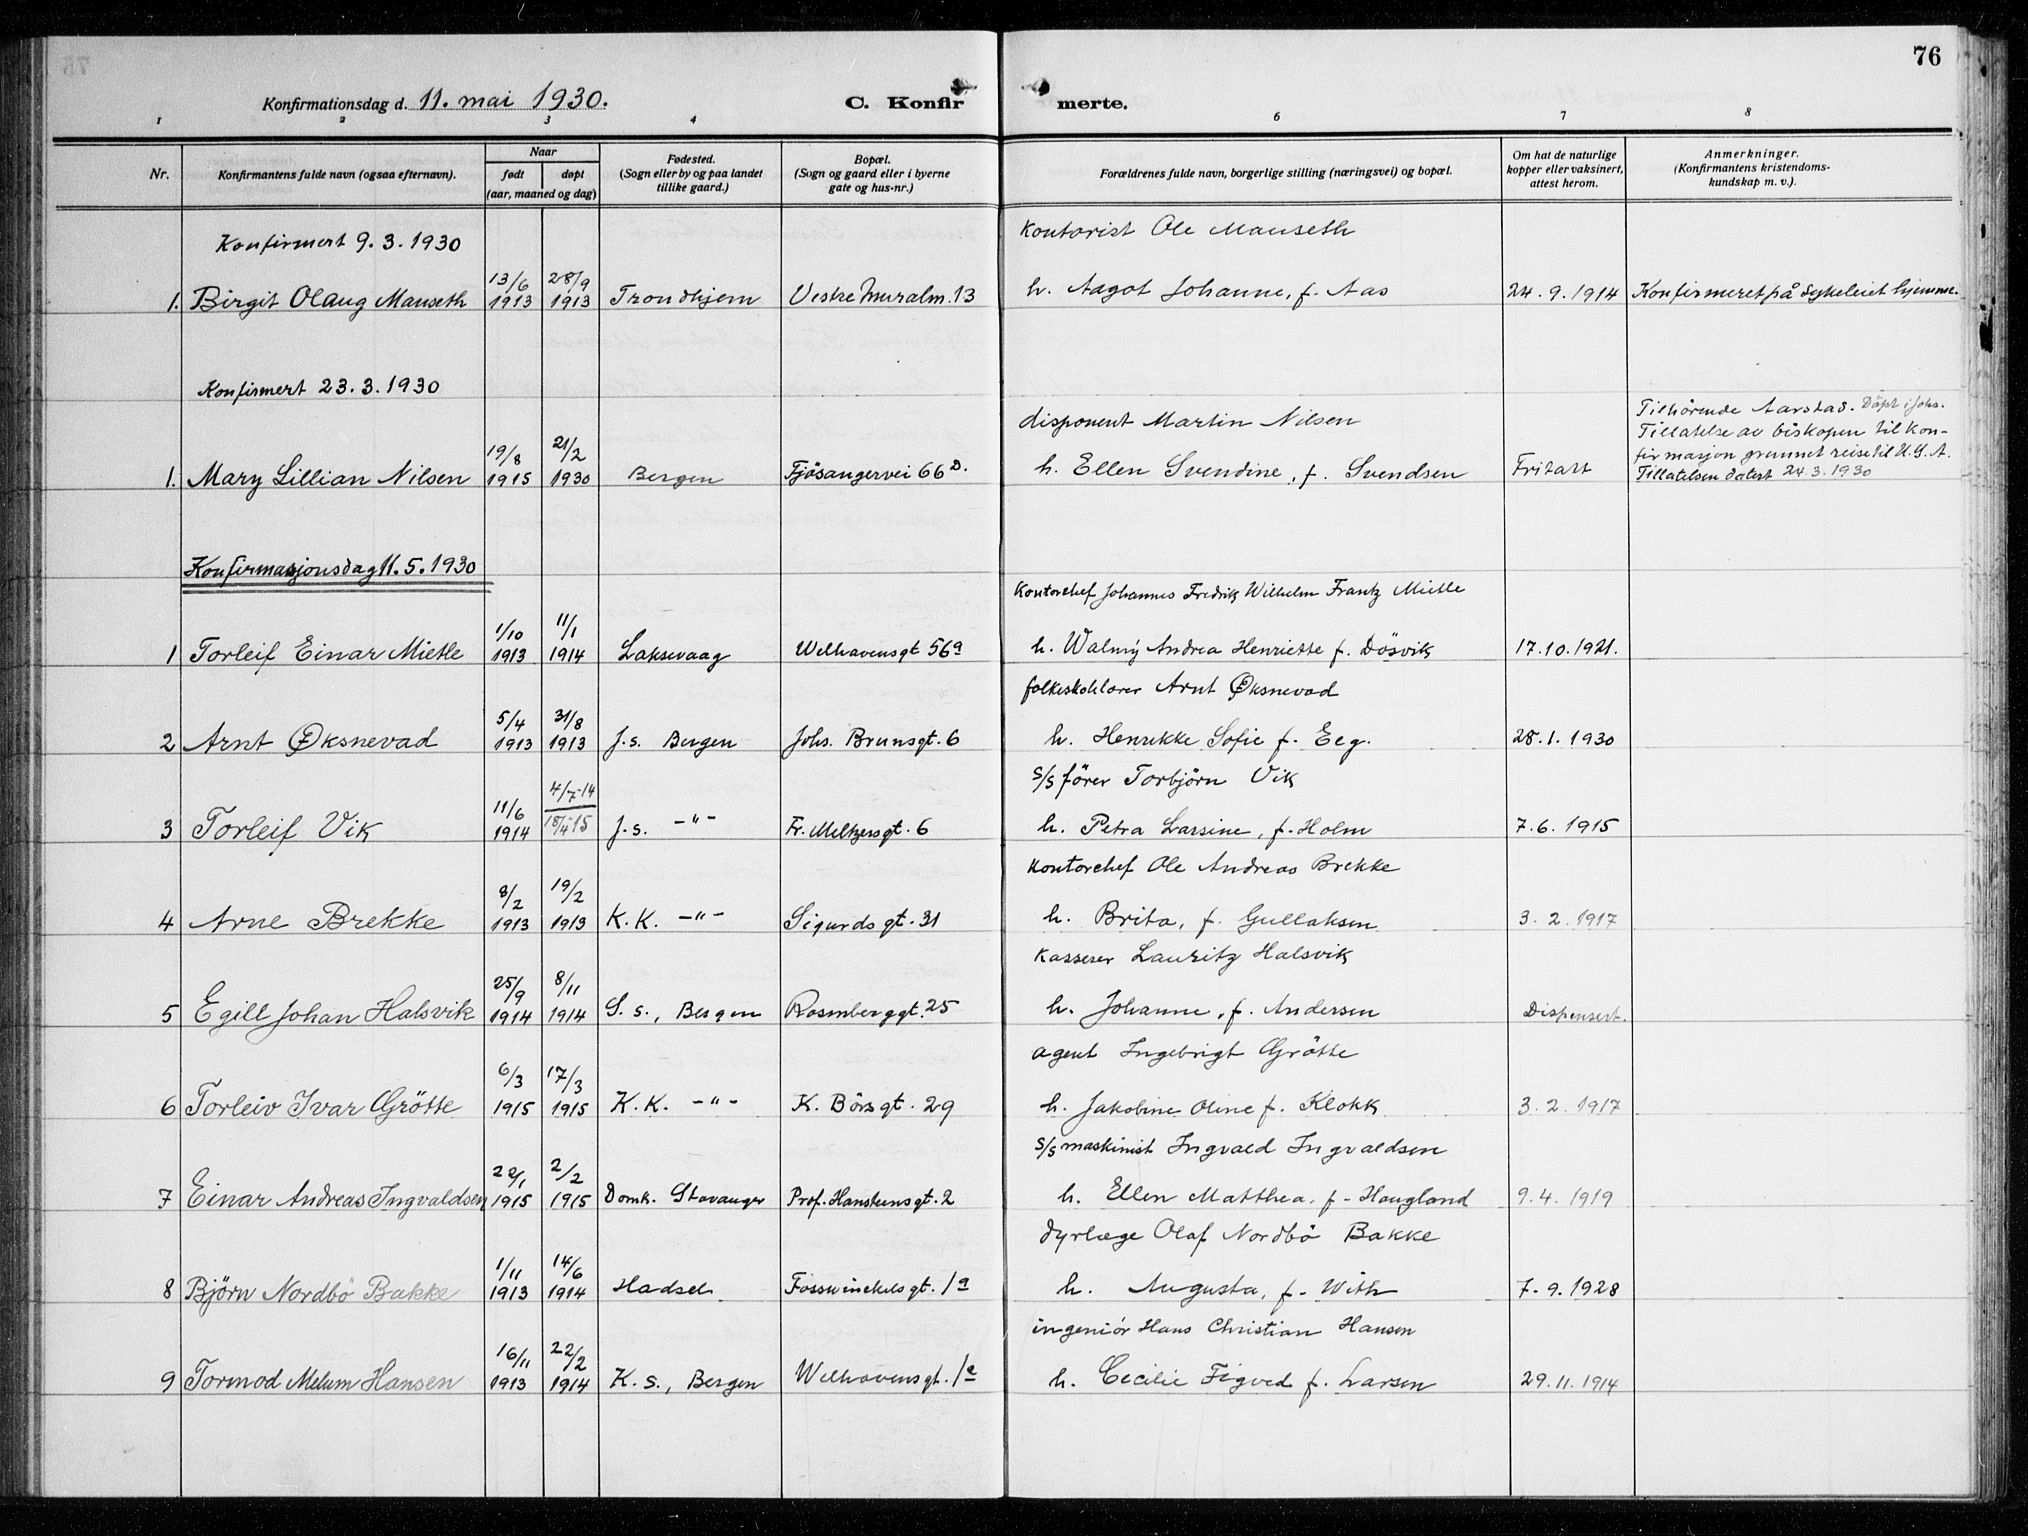 76
Konfirmationsdag d. 11. mai 1930.
C. Konfirmerte.
1 2 3 4 6 7 8
Nr.
Konfirmantens fulde navn (ogsaa efternavn).
Naar
født
døpt
(aar, maaned og dag)
Fødested.
(Sogn eller by og paa landet
tillike gaard.)
Bopæl.
(Sogn og gaard eller i byerne
gate og hus-nr.)
Forældrenes fulde navn, borgerlige stilling (næringsvei) og bopæl.
Om hat de naturlige
kopper eller vaksinert,
attest herom.
Anmerkninger.
(Konfirmantens kristendoms-
kundskap m. v.).
Konfirmert 9.3.1930
Kontorist Ole Manseth
13/6 28/9
1. Birgit Olaug Manseth 1913 1913 Trondhjem Vestre Muralm. 13 h. Aagot Johanne, f. Aas 24.9.1914 Konfirmeret på sykeleiet hjemme.
Konfirmert 23.3.1930
disponent Martin Nilsen
Tilhørende Aarstad. Döpt i Johs.
Tillatelse av biskopen til kon-
firmasjon grunnet reise til U.S.A.
Tillatelsen datert 24.3.1930
19/8 21/2
1. Mary Lillian Nilsen 1915 1930 Bergen Fjösangervei 66 D. h. Ellen Svendine, f. Svendsen Fritatt
Konfirmasjonsdag 11.5.1930
Kontorchef Johannes Fredrik Wilhelm Frantz Mietle
1/10 11/1
1 Torleif Einar Mietle 1913 1914 Laksevaag Welhavensgt 56a h. Walmy Andrea Henriette f. Dösvik 17.10.1921.
folkeskolelærer Arnt Øksnevad
5/4 31/8
2 Arnt Øksnevad 1913 1913 J.s. Bergen Johs. Brunsgt. 6 h. Henrikke Sofie f. Eeg. 28.1.1930
S/S förer Torbjörn Vik
11/6 4/7-14
3 Torleif Vik 1914 18/4-15 J.s. -"- Fr. Meltzersgt. 6 h. Petra Larsine, f. Holm 7.6.1915
Kontorchef Ole Andreas Brekke
8/2 19/2
4 Arne Brekke 1913 1913 K.K. -"- Sigurdsgt. 31 h. Brita, f. Gullaksen 3.2.1917
Kasserer Lauritz Halsvik
25/9 8/11
5 Egill Johan Halsvik 1914 1914 S.s., Bergen Rosenberggt. 25 h. Johanne, f. Andersen Dispensert.
agent Ingebrigt Grötte
6/3 17/3
6 Torleiv Ivar Grötte 1915 1915 K.K. -"- K. Börsgt. 29 h. Jakobine Oline f. Klokk 3.2.1917
S/S maskinist Ingvald Ingvaldsen
22/1 2/2
7 Einar Andreas Ingvaldsen 1915 1915 Domk. Stavanger Prof. Hansteensgt. 2 h. Ellen Matthea, f. Haugland 9.4.1919
dyrlæge Olaf Nordbö Bakke
1/11 14/6
8 Björn Nordbö Bakke 1913 1914 Hadsel Fosswinckelsgt. 1a h. Augusta, f. With 7.9.1928
ingeniör Hans Christian Hansen
16/11 22/2
9 Tormod Melum Hansen 1913 1914 K.s., Bergen Welhavensgt. 1a h. Cecilie Figved f. Larsen 29.11.1914